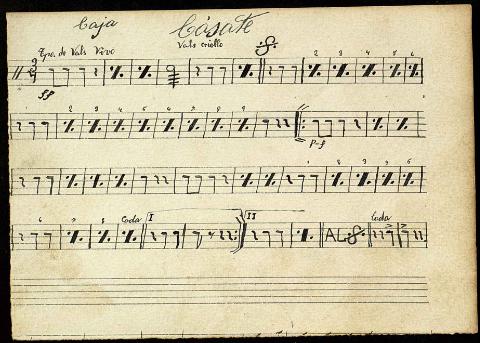 Caja Cásate
Tpo. de Vals Vivo Vals criollo
ff 2 3 4 5 6
1 2 3 4 5 6 7 8 9
P-f
1 2 3 4 5
6 7 8 Coda I II AL Coda